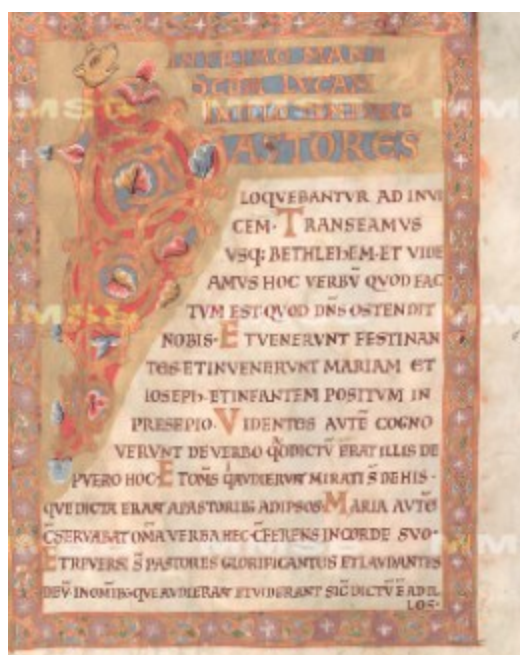 IN PRIMO MANE
SCDM LVCAM
PASTORES
LOQVEBANTVR AD INVI
CEM· TRANSEAMVS
VSQ; BETHLEHEM·ET VIDE
AMVS HOC VERBV̄ QVOD FAC
TVM EST·QVOD DN̄S OSTENDIT
NOBIS· ET VENERVNT FESTINAN
TES ET INVENERVNT MARIAM ET
IOSEPH· ET INFANTEM POSITVM IN
PRESEPIO· VIDENTES AVTĒ COGNO
VERVNT DE VERBO Q̄ DICTV̄ ERAT ILLIS DE
PVERO HOC· ET OM̄S Q̇ AVDIERVNT MIRATI S̄ DE HIS·
QVE DICTA ERANT A PASTORIB; AD IPSOS· MARIA AVTĒ
C̄SERVABAT OM̄A VERBA HEC· C̄FERENS IN CORDE SVO·
ET REVERSI S̄ PASTORES GLORIFICANTES ET LAVDANTES
DEV̄· IN OMIB; QVE AVDIERANT ET VIDERANT SIC̄ DICTV̄ Ē AD IL
LOS·
MMSB